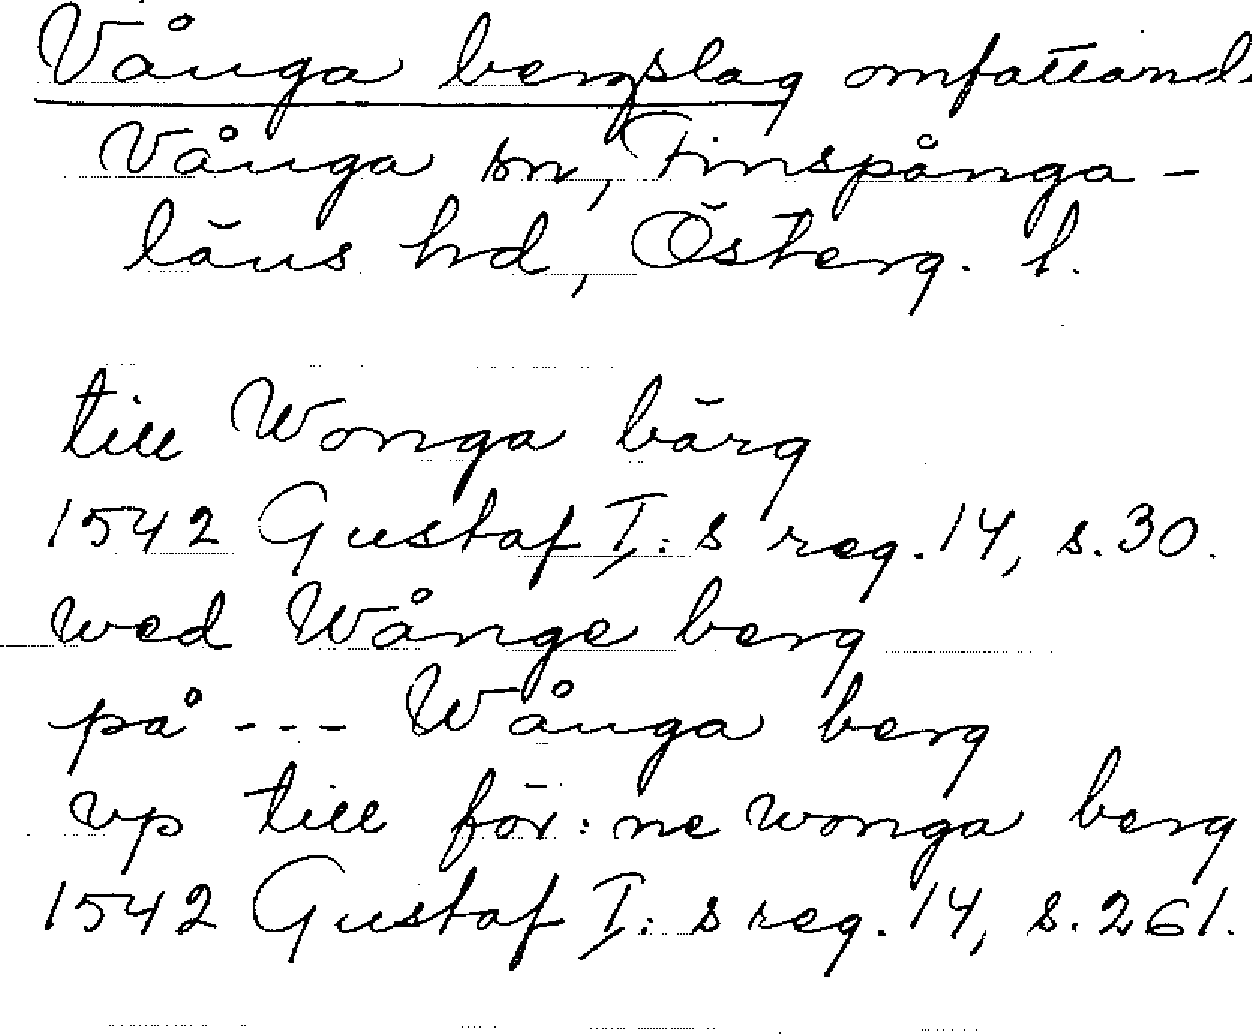 Vånga bergslag omfattande
Vånga sn, Finspånga-
läns hd, Österg. l.
till Wonga bärg
1542 Gustaf I:s reg. 14, s. 30.
wed Wånge berg
på --- Wånga berg
vp till för:ne wonga berg
1542 Gustaf I:s reg. 14, s. 261.